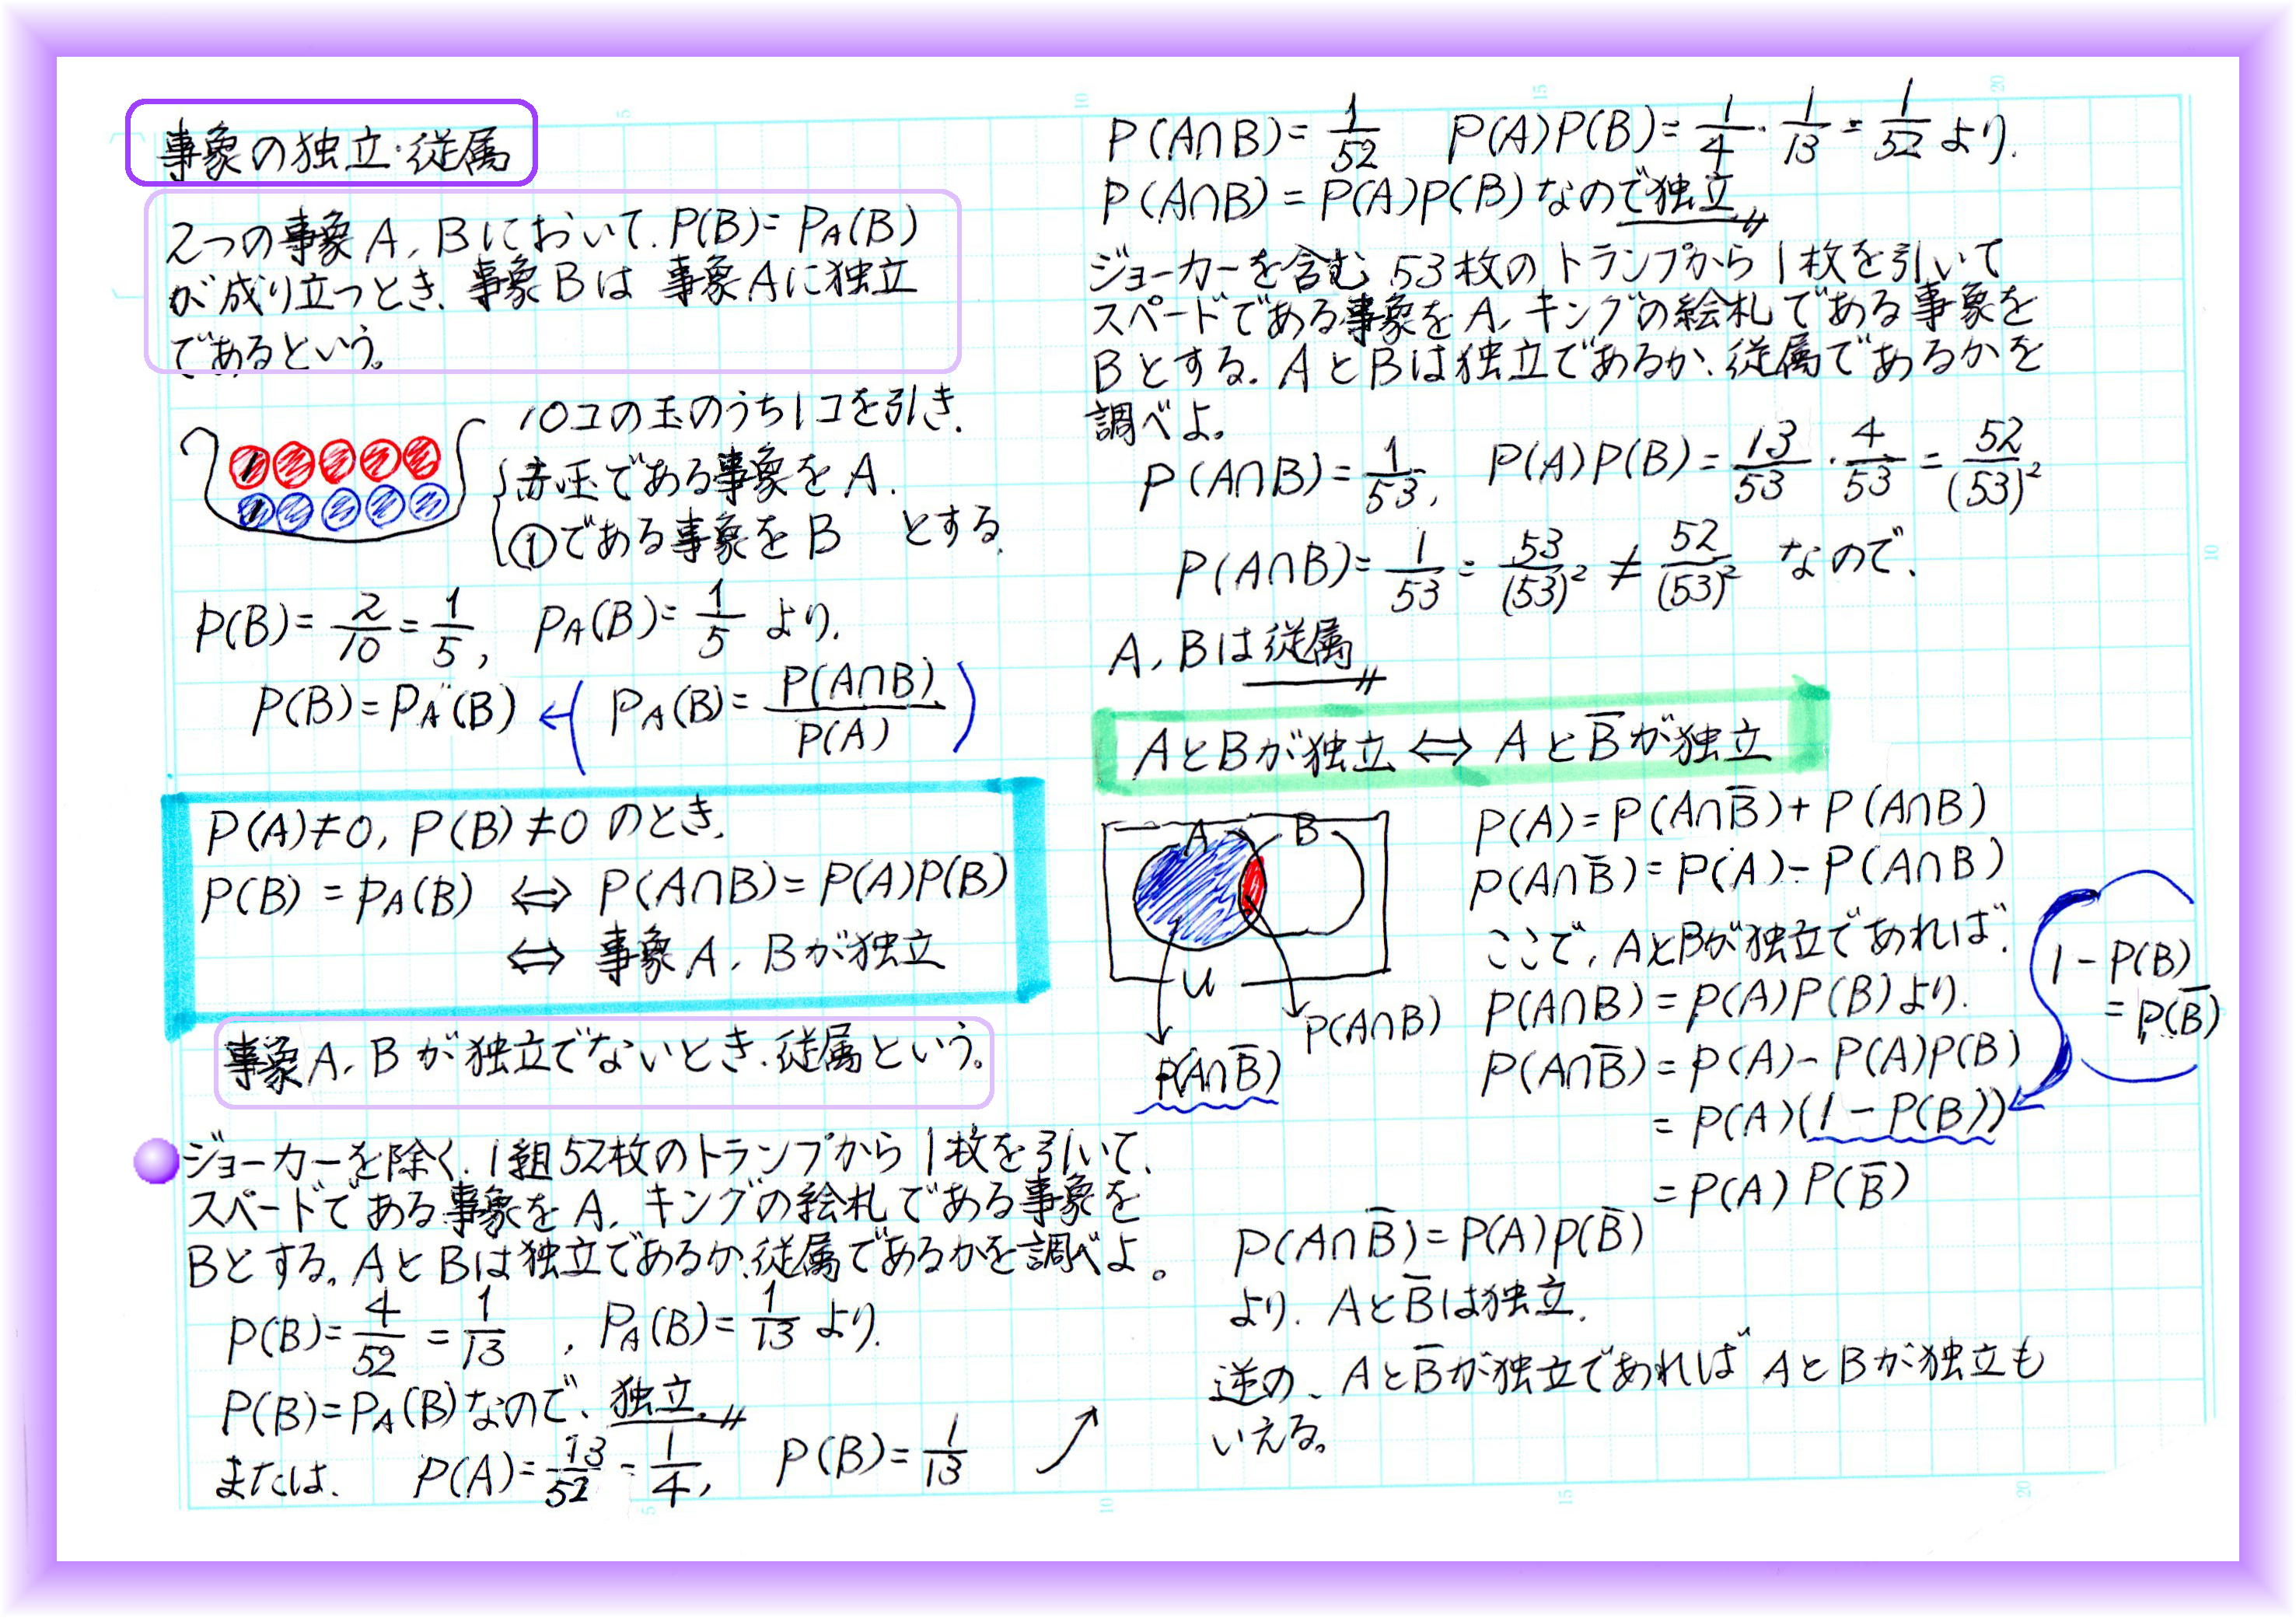 事象の独立・従属
2つの事象A, Bにおいて. P(B)= P_A(B)
が成り立つとき、事象Bは 事象Aに独立
であるという。
10コの玉のうち1コを引き.
赤玉である事象をA.
①である事象をB とする.
P(B)= 2/10 = 1/5, P_A(B)= 1/5 より.
P(B)=P_A(B) ← ( P_A(B)= P(A∩B)/P(A) )
P(A)≠0, P(B)≠0 のとき.
P(B) = P_A(B) ⇔ P(A∩B)= P(A)P(B)
⇔ 事象A, Bが独立
事象A, Bが独立でないとき、従属という。
ジョーカーを除く. 1組52枚のトランプから1枚を引いて、
スペードである事象をA, キングの絵札である事象を
Bとする。AとBは独立であるか、従属であるかを調べよ。
P(B)= 4/52 = 1/13 , P_A(B)= 1/13 より.
P(B)=P_A(B)なので、独立.
または. P(A)= 13/52 = 1/4, P(B)= 1/13
P(A∩B)= 1/52 P(A)P(B)= 1/4・1/13 = 1/52 より.
P(A∩B)= P(A)P(B)なので独立
ジョーカーを含む 53枚のトランプから1枚を引いて
スペードである事象をA, キングの絵札である事象を
Bとする. AとBは独立であるか、従属であるかを
調べよ。
P(A∩B)= 1/53, P(A)P(B)= 13/53・4/53 = 52/(53)²
P(A∩B)= 1/53 = 53/(53)² ≠ 52/(53)² なので、
A, Bは従属
AとBが独立 ⇔ AとB̅が独立
A B
U
P(A∩B)
P(A∩B̅)
P(A)=P(A∩B̅)+P(A∩B)
P(A∩B̅)=P(A)-P(A∩B)
ここで, AとBが独立であれば.
P(A∩B)=P(A)P(B)より.
P(A∩B̅)=P(A)-P(A)P(B)
=P(A)(1-P(B))
=P(A)P(B̅)
1-P(B)
=P(B̅)
P(A∩B̅)=P(A)P(B̅)
より. AとB̅は独立.
逆の、AとB̅が独立であれば AとBが独立も
いえる。